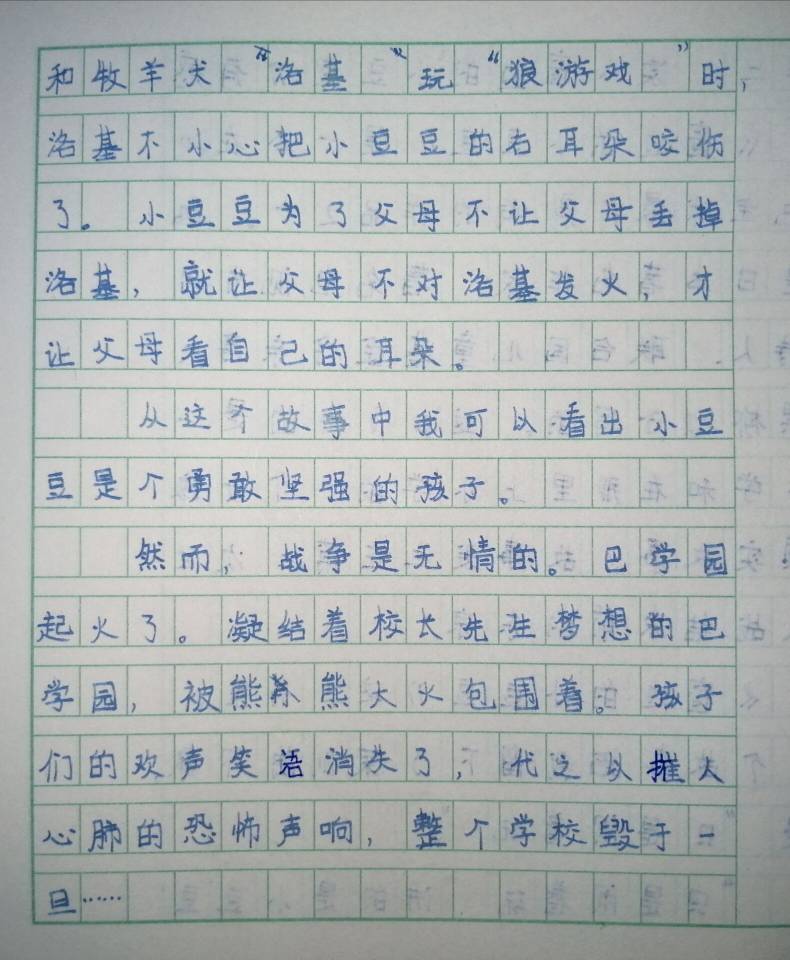 和牧羊犬“洛基”玩“狼游戏”时，
洛基不小心把小豆豆的右耳朵咬伤
了。小豆豆为了父母不让父母丢掉
洛基，就让父母不对洛基发火，才
让父母看自己的耳朵。
从这个故事中我可以看出小豆
豆是个勇敢坚强的孩子。
然而，战争是无情的。巴学园
起火了。凝结着校长先生梦想的巴
学园，被熊熊大火包围着。孩子
们的欢声笑语消失了，代之以摧人
心肺的恐怖声响，整个学校毁于一
旦……